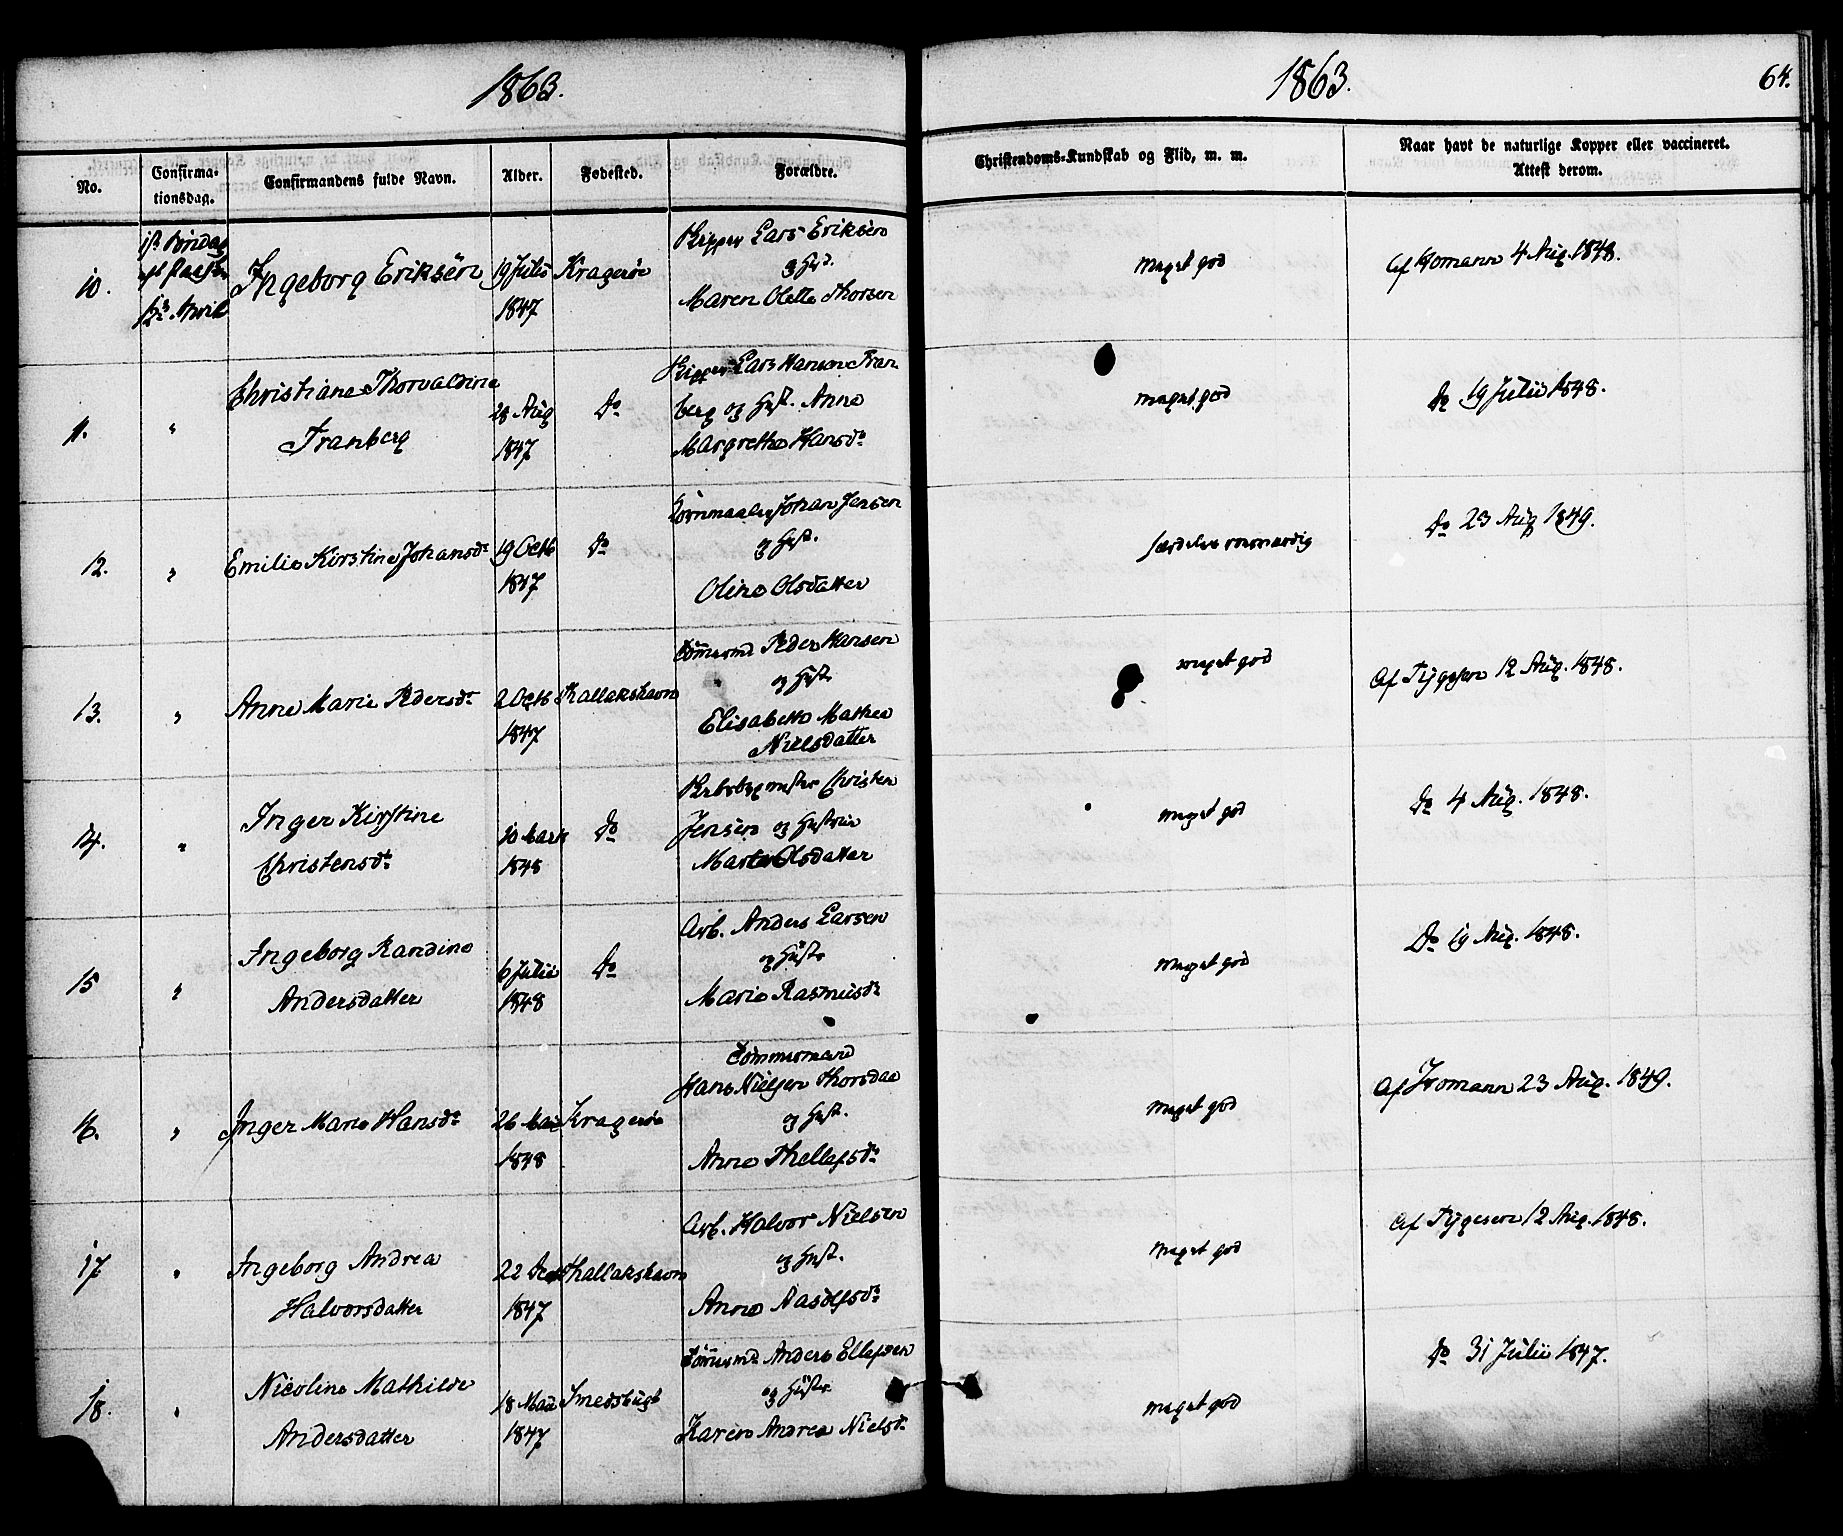 1863.
No.
Confirma-
tionsdag.
Confirmandens fulde Navn.
Alder.
Fødested.
Forældre.
10.
1ste Søndag
eft Paaske
12te April
Ingeborg Eriksen
19 Juli
1847
Kragerøe
Skipper Lars Eriksen
og Hst.
Maren Olette Thorsen
11.
"
Christiane Thorvaldine
Franberg
28 Aug
1847
Do
Skipper Lars Hansen Fran
berg og Hust. Anne
Margrethe Hansdr
12.
"
Emilie Kirstine Johansdr
19 Octb
1847
Do
Kornmaaler Johan Jensen
og Hust.
Oline Olsdatter
13.
"
Anne Marie Pedersdr
2 Octb
1847
Kallakshavn
Tømmermd Peder Hansen
og Hust
Elisabeth Mathea
Nielsdatter
14.
"
Inger Kirstine
Christensdr
10 Marts
1848
Do
Christen
Jensen og Hustrue
Marte Olsdatter
15
"
Ingeborg Randine
Andersdatter
6 Julii
1848
Do
Arb. Anders Larsen
og Hustr
Marie Rasmusdr
16.
"
Inger Marie Hansdr
26 Mai
1848
Kragerøe
Tømmermand
Hans Nielsen Thorsdal
og Hust.
Anne Thellefsdr
17
"
Ingeborg Andrea
Halvorsdatter
22 Dec
1847
Kallakshavn
Arb. Halvor Nielsen
og Hust.
Anne Aasolfsdr
18.
"
Nicoline Mathilde
Andersdatter
18 Mai
1847
Smedsbugt
Tømmermd Anders Ellefsen
og Hustr.
Karen Andrea Nielsdr
1863.
64.
Christendoms-Kundskab og Flid, m. m.
Naar havt de naturlige Kopper eller vaccineret.
Attest derom.
meget god
Af Homann 4 Aug. 1848.
meget god
Do 19 Julii 1848.
særdeles roesværdig
Do 23 Aug 1849.
meget god
Af Tygesen 12 Aug. 1848.
meget god
Do 4 Aug. 1848.
meget god
Do 19 Aug. 1848.
meget god
Af Homann 23 Aug. 1849.
meget god
Af Tygesen 12 Aug. 1848.
meget god
Do 31 Julii 1847.